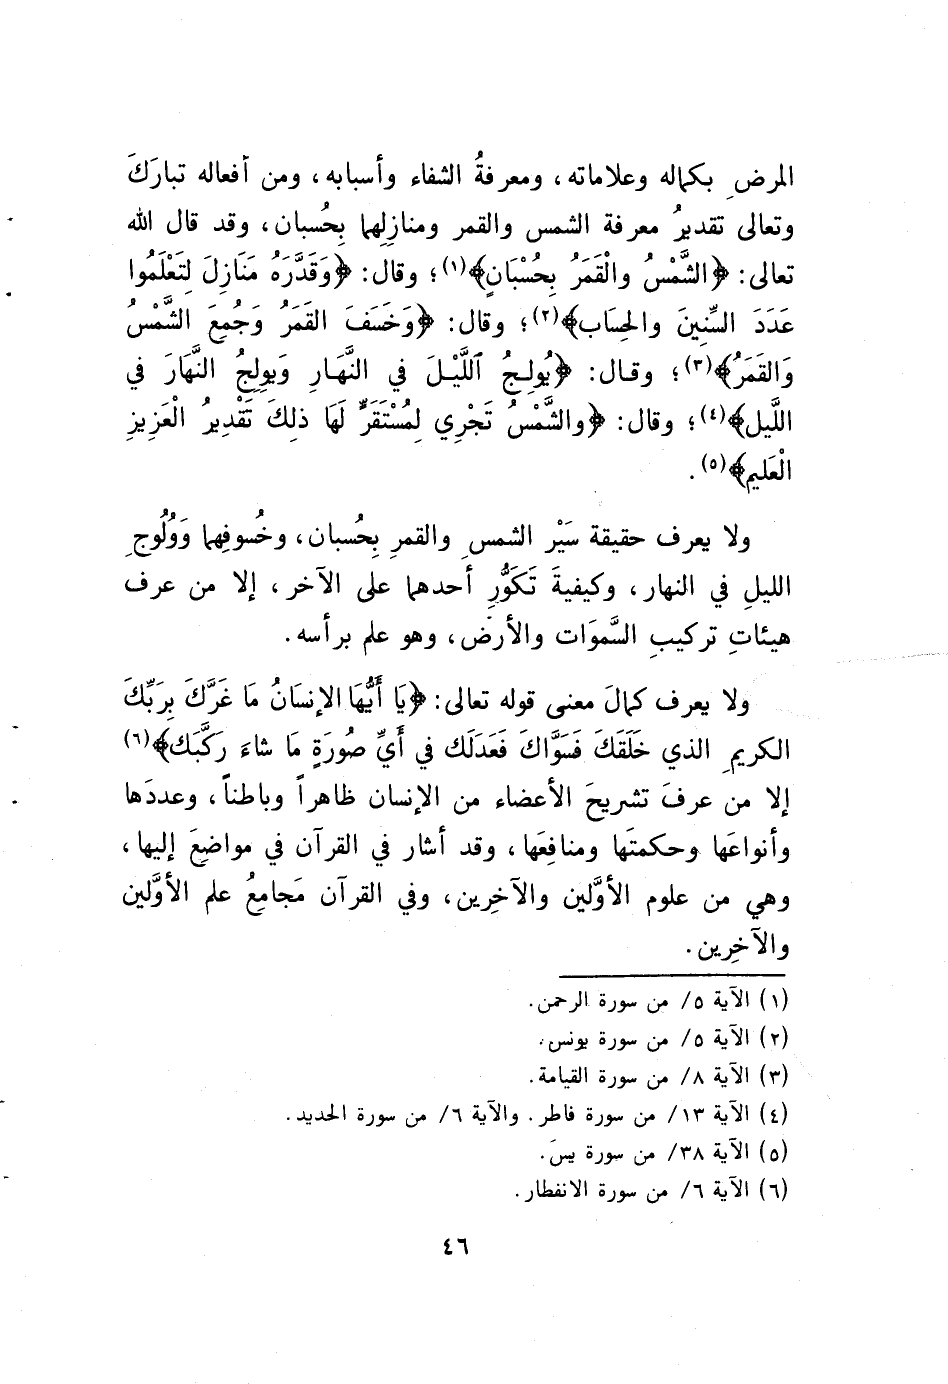 المرضِ بكماله وعلاماته، ومعرفةُ الشفاء وأسبابه، ومن أفعاله تبارَكَ
وتعالى تقديرُ معرفة الشمس والقمر ومنازلِهما بِحُسبان، وقد قال الله
تعالى: ﴿الشَّمْسُ والْقَمَرُ بِحُسْبَانٍ﴾(١)؛ وقال: ﴿وَقَدَّرَهُ مَنَازِلَ لِتَعْلَمُوا
عَدَدَ السِّنِينَ والحِسَاب﴾(٢)؛ وقال: ﴿وَخَسَفَ القَمَرُ وَجُمِعَ الشَّمْسُ
وَالقَمَرُ﴾(٣)؛ وقال: ﴿يُولِجُ ٱللَّيْلَ في النَّهَارِ وَيولِجُ النَّهَارَ في
اللَّيل﴾(٤)؛ وقال: ﴿والشَّمْسُ تَجْرِي لِمُسْتَقَرٍّ لَهَا ذلِكَ تَقْدِيرُ الْعَزِيزِ
الْعَليم﴾(٥).
ولا يعرف حقيقة سَيْر الشمسِ والقمرِ بِحُسبان، وخُسوفِهما وَوُلُوجِ
الليلِ في النهار، وكيفيةَ تَكَوُّرِ أحدهما على الآخر، إلا من عرف
هيئاتِ تركيبِ السَّموَات والأرض، وهو علم برأسه.
ولا يعرف كمالَ معنى قوله تعالى: ﴿يَا أَيُّهَا الإنسَانُ مَا غَرَّكَ بِرَبِّكَ
الكريمِ الذي خَلَقَكَ فَسَوَّاكَ فَعَدَلَك في أَيِّ صُورَةٍ مَا شاءَ رَكَّبَك﴾(٦)
إلا من عرفَ تشريحَ الأعضاء من الإنسان ظاهراً وباطناً، وعددَها
وأنواعَها وحكمتَها ومنافِعَها، وقد أشار في القرآن في مواضعَ إليها،
وهي من علوم الأوَّلين والآخِرين، وفي القرآن مَجامِعُ علم الأوَّلين
والآخِرين.
(١) الآية ٥/ من سورة الرحمن.
(٢) الآية ٥/ من سورة يونس.
(٣) الآية ٨/ من سورة القيامة.
(٤) الآية ١٣/ من سورة فاطر. والآية ٦/ من سورة الحديد.
(٥) الآية ٣٨/ من سورة يسَ.
(٦) الآية ٦/ من سورة الانفطار.
٤٦